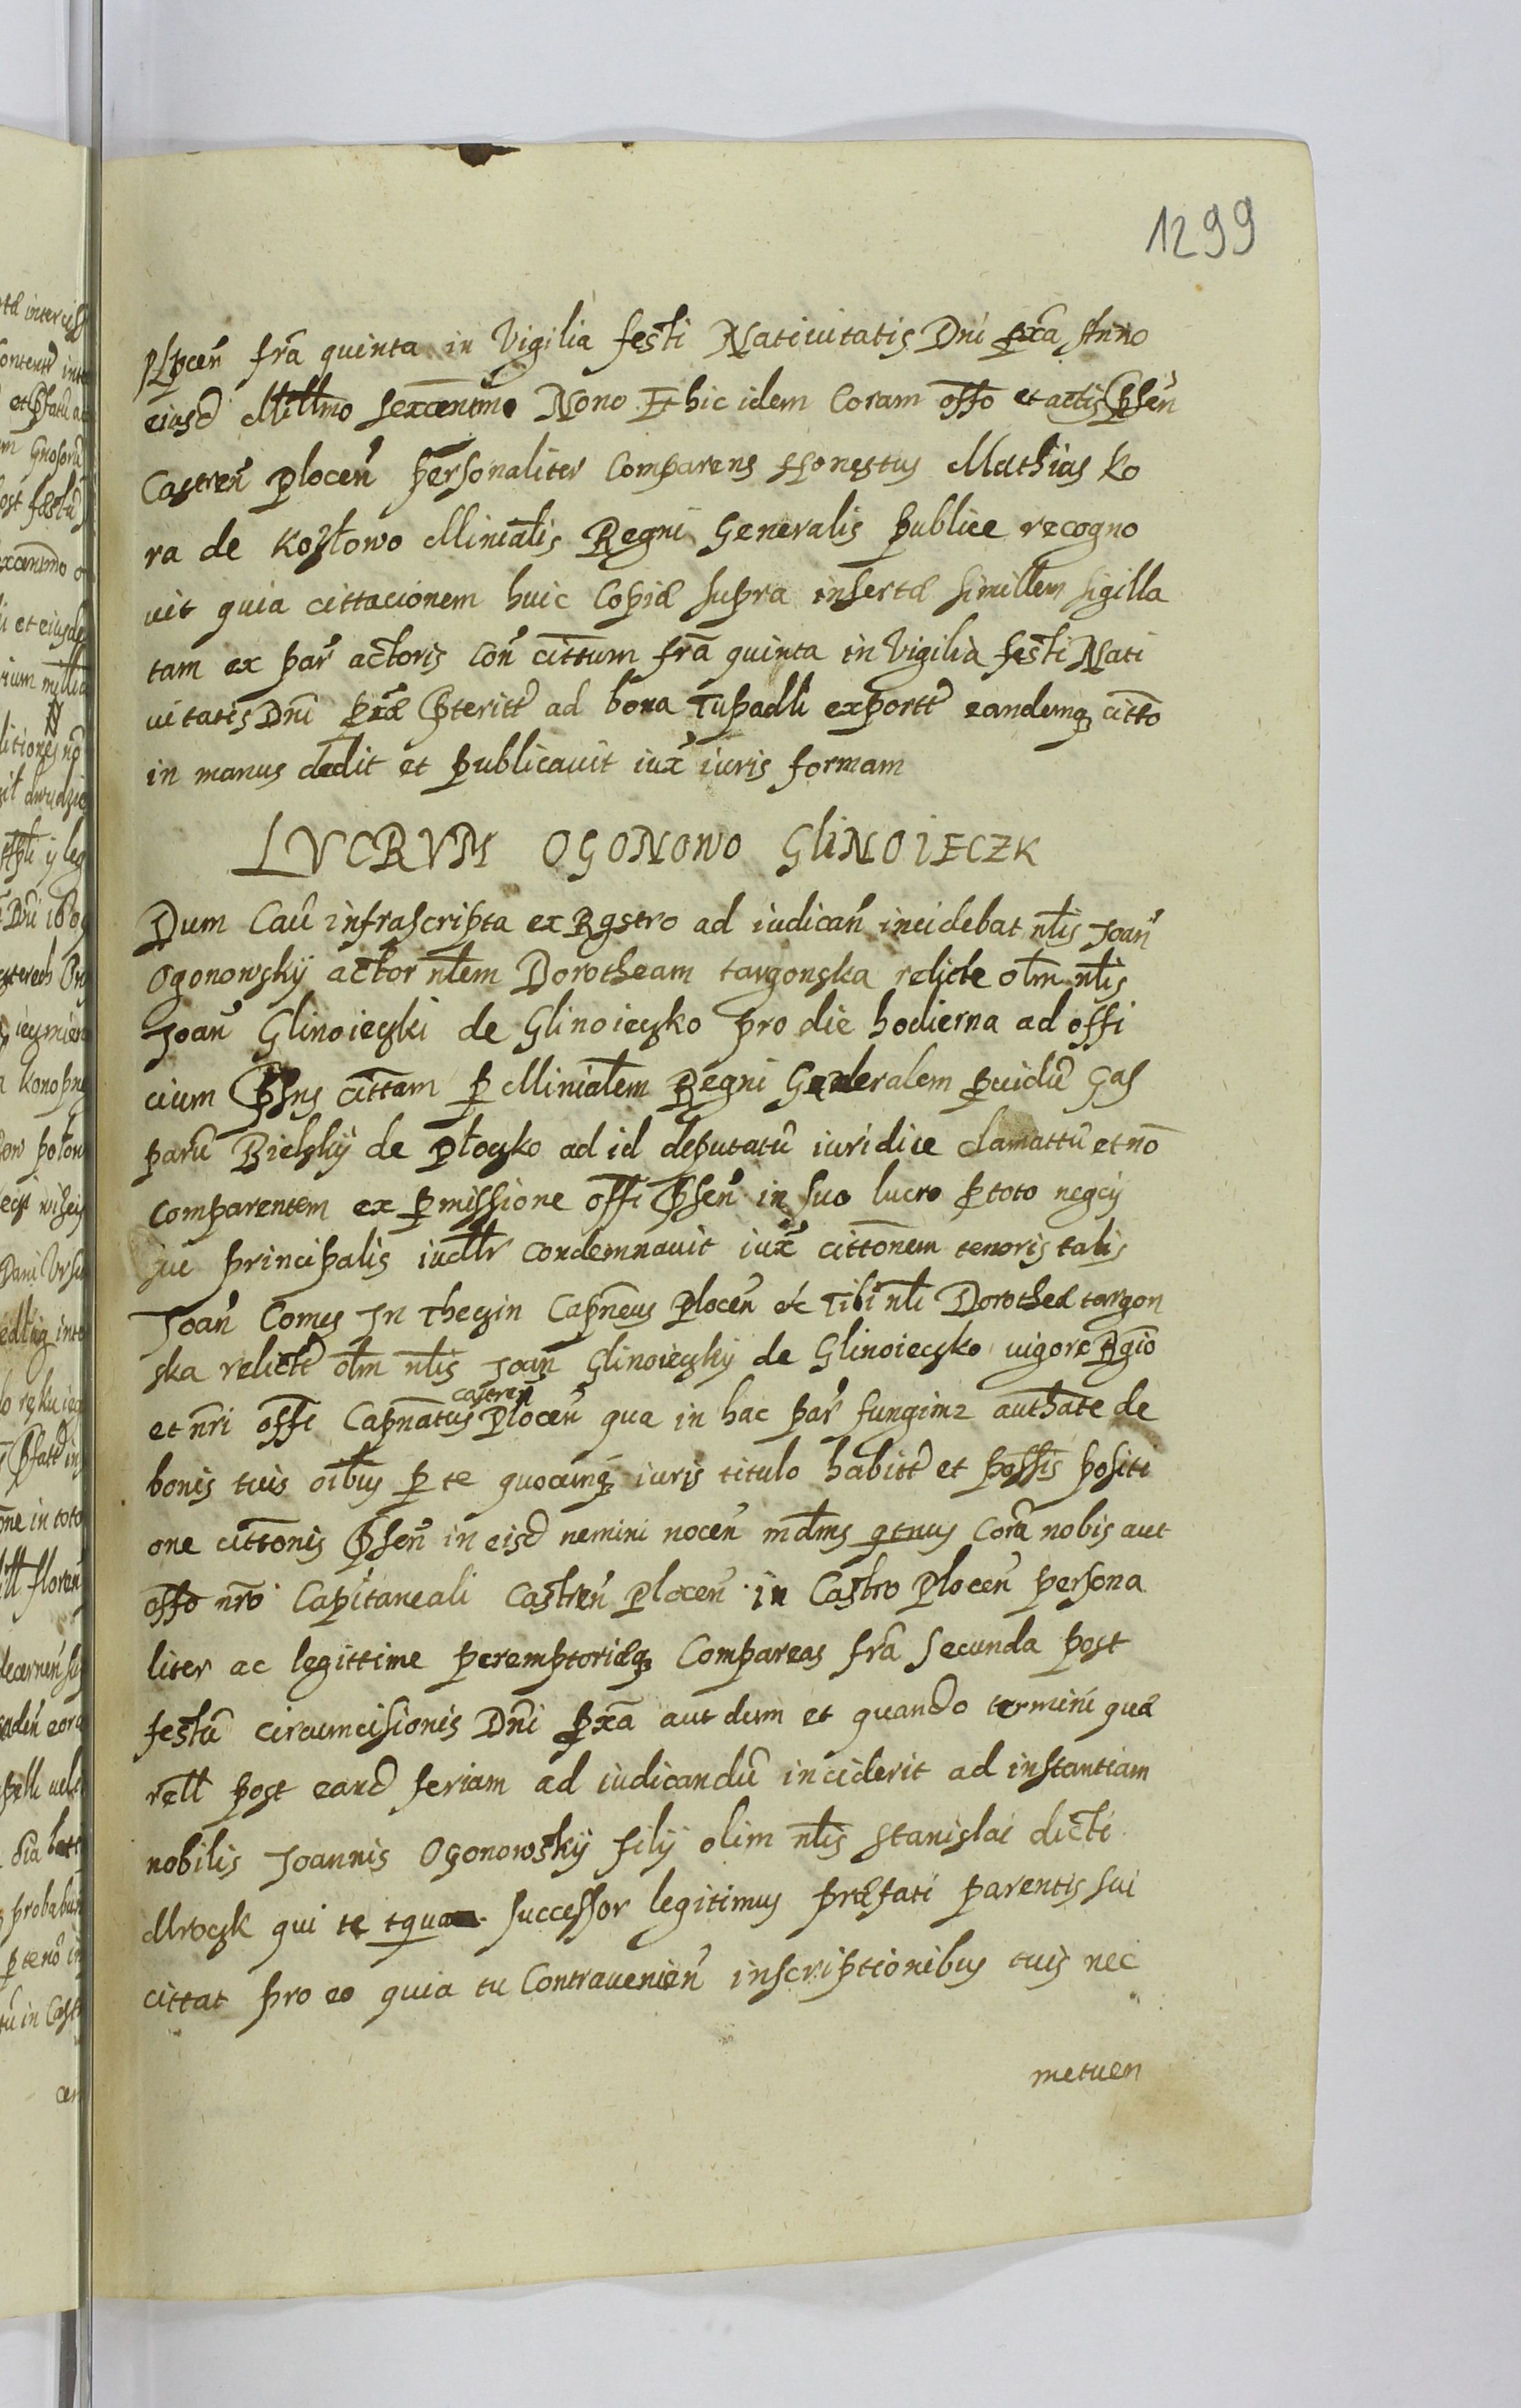 1299
fra quinta in Vigilia festi Natiuitatis Dni pxa Anno
eiusd Millmo sexcentmo Nono Et hic idem Coram offo et actis Psen
Castren Plocen Personaliter Comparens Honestus Mathias Ko
ra de Kozłowo Ministlis Regni Generalis Publice recogno
uit quia cittacionem huic Copiæ supra insertæ simillem sigilla
tam ex par actoris Con cittum fra quinta in Vigilia festi Nati
uitatis Dni pxæ Pteritt ad bona Tupadli exportt eandemq citto
in manus dedit et publicauit iux iuris formam
LVCRVM OGONOWO GliNOiECZK
Dum Cau infrascripta ex Rgstro ad iudican incidebat nlis Joan
Ogonowsky actor nlem Dorotheam targonska relicte olm nlis
Joan Glinoieczki de Glinoieczko pro die hodierna ad offi
cium Psns cittam p Ministlem Regni Generalem puidu Gas
paru Bielsky de Płoczko ad id deputatu iuridice clamattu et no
comparentem ex pmissione offi Psen in suo lucro p toto negcy
sui principalis iudlr condemnauit iux cittonem tenoris talis
Joan Comes In Theczin Capneus Plocen etc Tibi nli Dorotheæ targon
ska relictæ olm nlis Joan Glinoieczky de Glinoieczko uigore Rgio
castren
et nri offi Capnatus Plocen qua in hac par fungimz authate de
bonis tuis oibus p te quocunq iuris titulo habitt et possis positi
one cittonis Psen in eisd nemini nocen mdms qtnus Cora nobis aut
offo nro Capitaneali Castren Plocen in Castro Plocen persona
liter ac legittime peremptorieq Compareas fra Secunda post
festu circumcisionis Dni pxa aut dum et quando termini quæ
rell post eand feriam ad iudicandu inciderit ad instantiam
nobilis Joannis Ogonowsky fily olim nlis Stanislai dicti
Mroczk qui te tquam successor legitimus præfati parentis sui
cittat pro eo quia tu Contrauenien inscriptionibus tuis nec
metuen